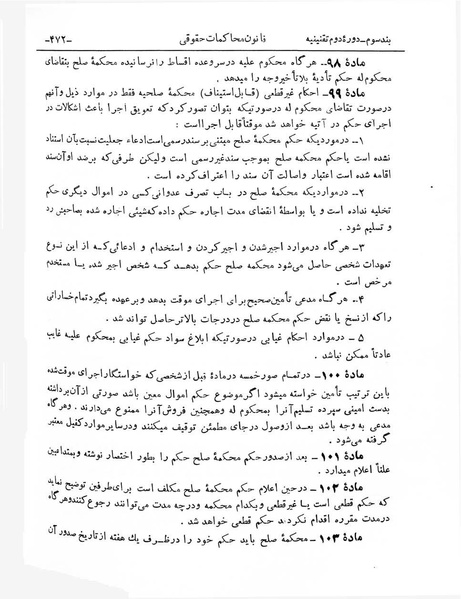 بند سوم ــ دورهٔ دوم تقنینیه قانون محاکمات حقوقی ــ۴۷۲ــ
مادهٔ ۹۸ــ هر گاه محکوم علیه در سروعده اقساط را نرسانیده محکمهٔ صلح بتقاضای
محکوم له حکم تأدیهٔ بلا تأخیر وجه را میدهد .
مادهٔ ۹۹ــ احکام غیر قطعی (قابل استیناف) محکمهٔ صلحیه فقط در موارد ذیل و آنهم
در صورت تقاضای محکوم له در صورتیکه بتوان تصور کرد که تعویق اجرا باعث اشکالات در
اجرای حکم در آتیه خواهد شد موقتاً قابل اجرا است :
۱ــ در موردیکه حکم محکمهٔ صلح مبتنی بر سند رسمی است ادعاء جعلیت نسبت بآن اسناد
نشده است یا حکم محکمهٔ صلح بموجب سند غیر رسمی است ولیکن طرفی که برضد او آن سند
اقامه شده است اعتبار و اصالت آن سند را اعتراف کرده است .
۲ــ در مواردیکه محکمهٔ صلح در باب تصرف عدوانی کسی در اموال دیگری حکم
تخلیه نداده است و یا بواسطهٔ انقضای مدت اجاره حکم داده که شیئی اجاره شده بصاحبش رد
و تسلیم شود .
۳ــ هر گاه در موارد اجیر شدن و اجیر کردن و استخدام و ادعائی که از این نوع
تعهدات شخصی حاصل می‌شود محکمهٔ صلح حکم بدهد که شخص اجیر شده یا مستخدم
مرخص است .
۴ــ هر گاه مدعی تأمین صحیح برای اجرای موقت بدهد و بر عهده بگیرد تمام خساراتی
را که از نسخ یا نقض حکم محکمهٔ صلح در درجات بالاتر حاصل تواند شد .
۵ ــ در موارد احکام غیابی در صورتیکه ابلاغ سواد حکم غیابی بمحکوم علیه غایب
عادتاً ممکن نباشد .
مادهٔ ۱۰۰ ــ در تمام صور خمسه در مادهٔ قبل از شخصی که خواستگار اجرای موقت شده
باین ترتیب تأمین خواسته میشود اگر موضوع حکم اموال معین باشد صورتی از آن برداشته
بدست امینی سپرده تسلیم آنرا بمحکوم له وهمچنین فروش آنرا ممنوع میدارند . و هر گاه
مدعی به وجه باشد بعد از وصول در جای مطمئن توقیف میکنند و در سایر موارد کفیل معتبر
گرفته می‌شود .
مادهٔ ۱۰۱ ــ بعد از صدور حکم محکمهٔ صلح حکم را بطور اختصار نوشته و بمتداعیین
علناً اعلام میدارد .
مادهٔ ۱۰۲ ــ در حین اعلام حکم محکمهٔ صلح مکلف است برای طرفین توضیح نماید
که حکم قطعی است یا غیر قطعی و بکدام محکمه و در چه مدت می‌توانند رجوع کنند و هر گاه
در مدت مقرره اقدام نکردند حکم قطعی خواهد شد .
مادهٔ ۱۰۳ ــ محکمهٔ صلح باید حکم خود را در ظرف یك هفته از تاریخ صدور آن